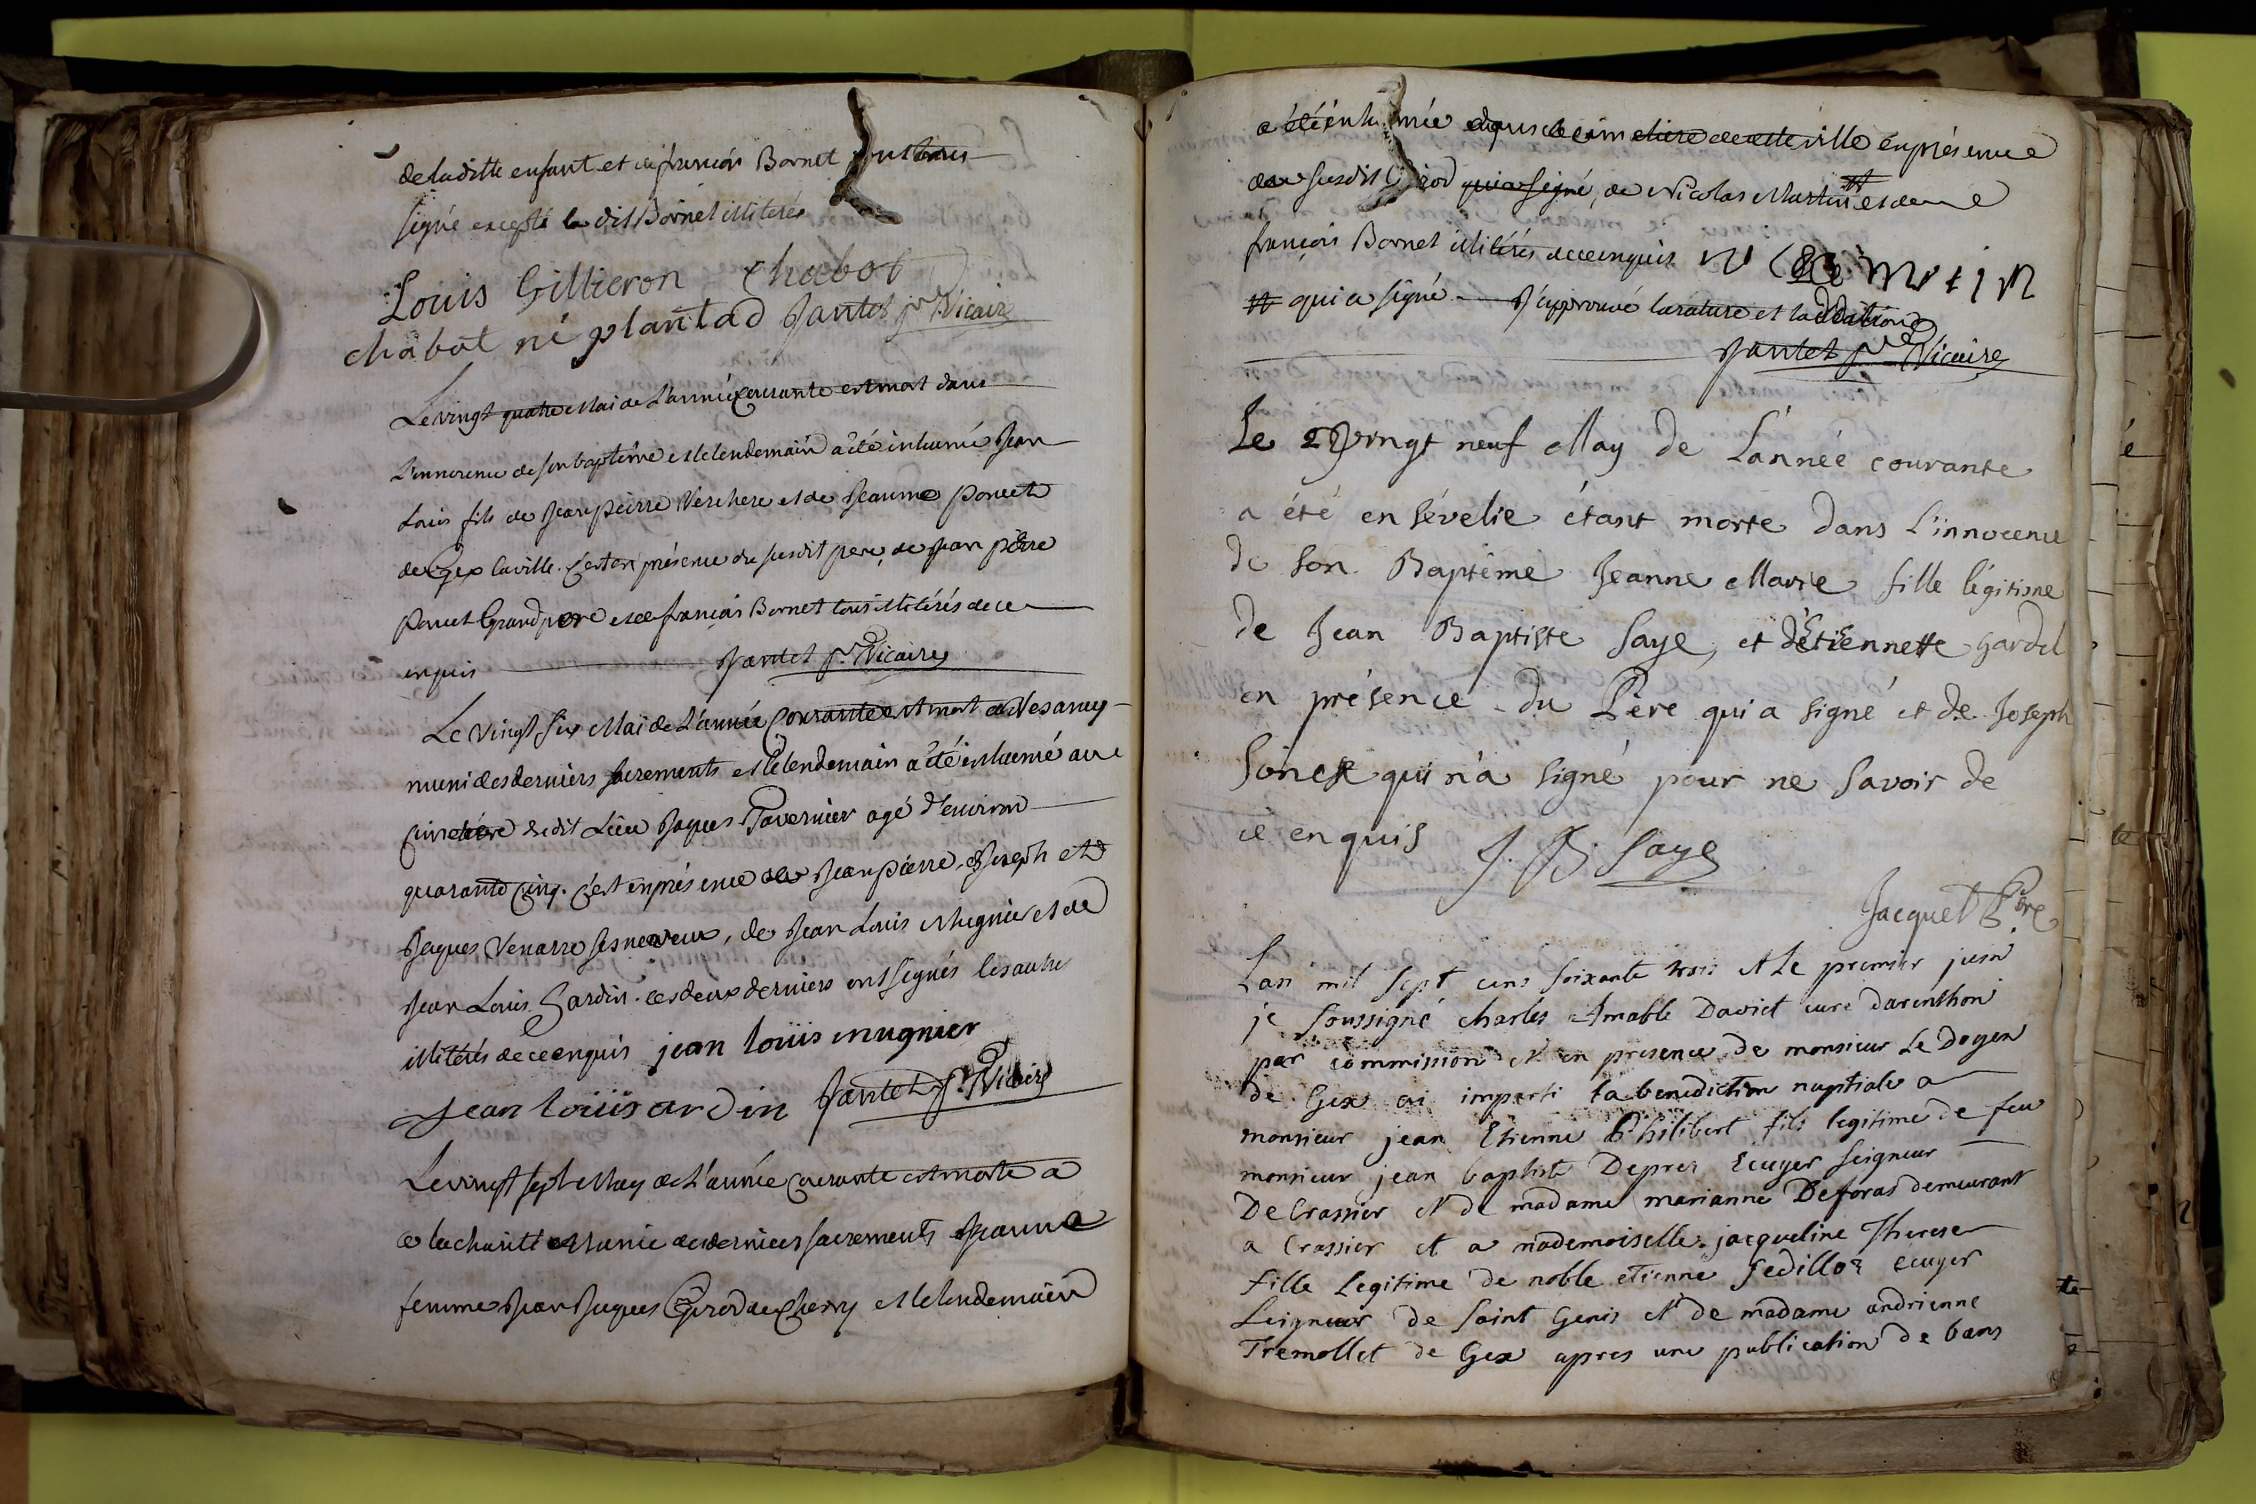 de laditte enfant et de françois Bornet
signé excepté le dit Bornet illiterés
Louis Gillieron Chabot
chabot né plantad Jantet p.re Vicaire
Le vingt quatre Mai de L'année courante est mort dans
L'innocence de son baptême et le lendemain a été inhumé Jean
Louis fils de Jean pierre Verchere et de Jeanne poncet
de Gex la ville. C'est en présence du susdit pere, de Jean pierre
Poncet Grand pere et de françois Bornet tous illitérés de ce
enquis Jantet p.re Vicaire
Le vingt six Mai de L'année Courante est mort à Vesancy
muni des derniers sacrements et le lendemain a été inhumé au
cimetiere dudit Lieu Jaques Tavernier agé d'environ
quarante cinq. c'est en présence de Jean pierre, Joseph et
Jaques Venarre ses neveux, de Jean Louis Mugnier et de
Jean Louis Sardin. ces deux derniers ont signés les autres
illitérés de ce enquis jean loüis mugnier
Jean loüis ardin Jantet p.re Vicaire
Le vingt sept May de L'année courante est morte a
la charité Munie des derniers sacrements Jeanne
femme Jean Jaques Girod de Chevry et le lendemain
a été inhumée dans le cimetiere de cette ville en présence
du susdit Girod qui a signé, de Nicolas Martin et de
françois Bornet illitérés de ce enquis
qui a signé J'approuvé la rature et laddition
Jantet p.re Vicaire
Le vingt neuf May de L'année courante
a été ensévelie étant morte dans L'innocence
de son Baptême Jeanne Marie fille légitime
de Jean Baptiste Saye, et d'Étiennette Gardel
en présence du Père qui a signé et de Joseph
qui n'a signé pour ne savoir de
ce enquis J. B. Saye
Jacquet Ptre
Lan mil sept cens soixante trois et Le premier juin
je soussigné charles Amable Daviet curé darenthon
par commission et en presence de monsieur Le Doyen
de Gex ai imparti la benediction nuptiale a
monsieur jean Etienne Philibert fils legitime de feu
monsieur jean baptiste Deprez Ecuyer Seigneur
De Crassier et de madame marianne Deforas demeurant
a Crassier et a mademoiselle jacqueline Therese
fille Legitime de noble etienne Sedillot ecuyer
Seigneur de Saint Genis et de madame andrienne
Tremollet de Gex apres une publication de bans